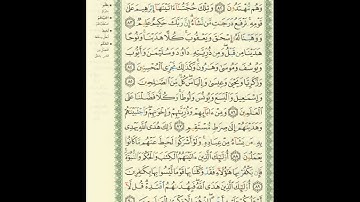 وَهُم مُّهْتَدُونَ ٨٢ وَتِلْكَ حُجَّتُنَا ءَاتَيْنَٰهَا إِبْرَٰهِيمَ عَلَىٰ
قَوْمِهِۦ نَرْفَعُ دَرَجَٰتٍ مَّن نَّشَاءُ إِنَّ رَبَّكَ حَكِيمٌ عَلِيمٌ ٨٣
وَوَهَبْنَا لَهُۥ إِسْحَٰقَ وَيَعْقُوبَ كُلًّا هَدَيْنَا وَنُوحًا
هَدَيْنَا مِن قَبْلُ وَمِن ذُرِّيَّتِهِۦ دَاوُۥدَ وَسُلَيْمَٰنَ وَأَيُّوبَ
وَيُوسُفَ وَمُوسَىٰ وَهَٰرُونَ وَكَذَٰلِكَ نَجْزِي الْمُحْسِنِينَ ٨٤
وَزَكَرِيَّا وَيَحْيَىٰ وَعِيسَىٰ وَإِلْيَاسَ كُلٌّ مِّنَ الصَّٰلِحِينَ ٨٥
وَإِسْمَٰعِيلَ وَالْيَسَعَ وَيُونُسَ وَلُوطًا وَكُلًّا فَضَّلْنَا عَلَى
الْعَٰلَمِينَ ٨٦ وَمِنْ ءَابَائِهِمْ وَذُرِّيَّٰتِهِمْ وَإِخْوَٰنِهِمْ وَاجْتَبَيْنَٰهُمْ
وَهَدَيْنَٰهُمْ إِلَىٰ صِرَٰطٍ مُّسْتَقِيمٍ ٨٧ ذَٰلِكَ هُدَى اللَّهِ يَهْدِي
بِهِۦ مَن يَشَاءُ مِنْ عِبَادِهِۦ وَلَوْ أَشْرَكُوا لَحَبِطَ عَنْهُم مَّا كَانُوا
يَعْمَلُونَ ٨٨ أُولَٰئِكَ الَّذِينَ ءَاتَيْنَٰهُمُ الْكِتَٰبَ وَالْحُكْمَ وَالنُّبُوَّةَ
فَإِن يَكْفُرْ بِهَا هَٰؤُلَاءِ فَقَدْ وَكَّلْنَا بِهَا قَوْمًا لَّيْسُوا بِهَا بِكَٰفِرِينَ
٨٩ أُولَٰئِكَ الَّذِينَ هَدَى اللَّهُ فَبِهُدَىٰهُمُ اقْتَدِهْ قُل لَّا